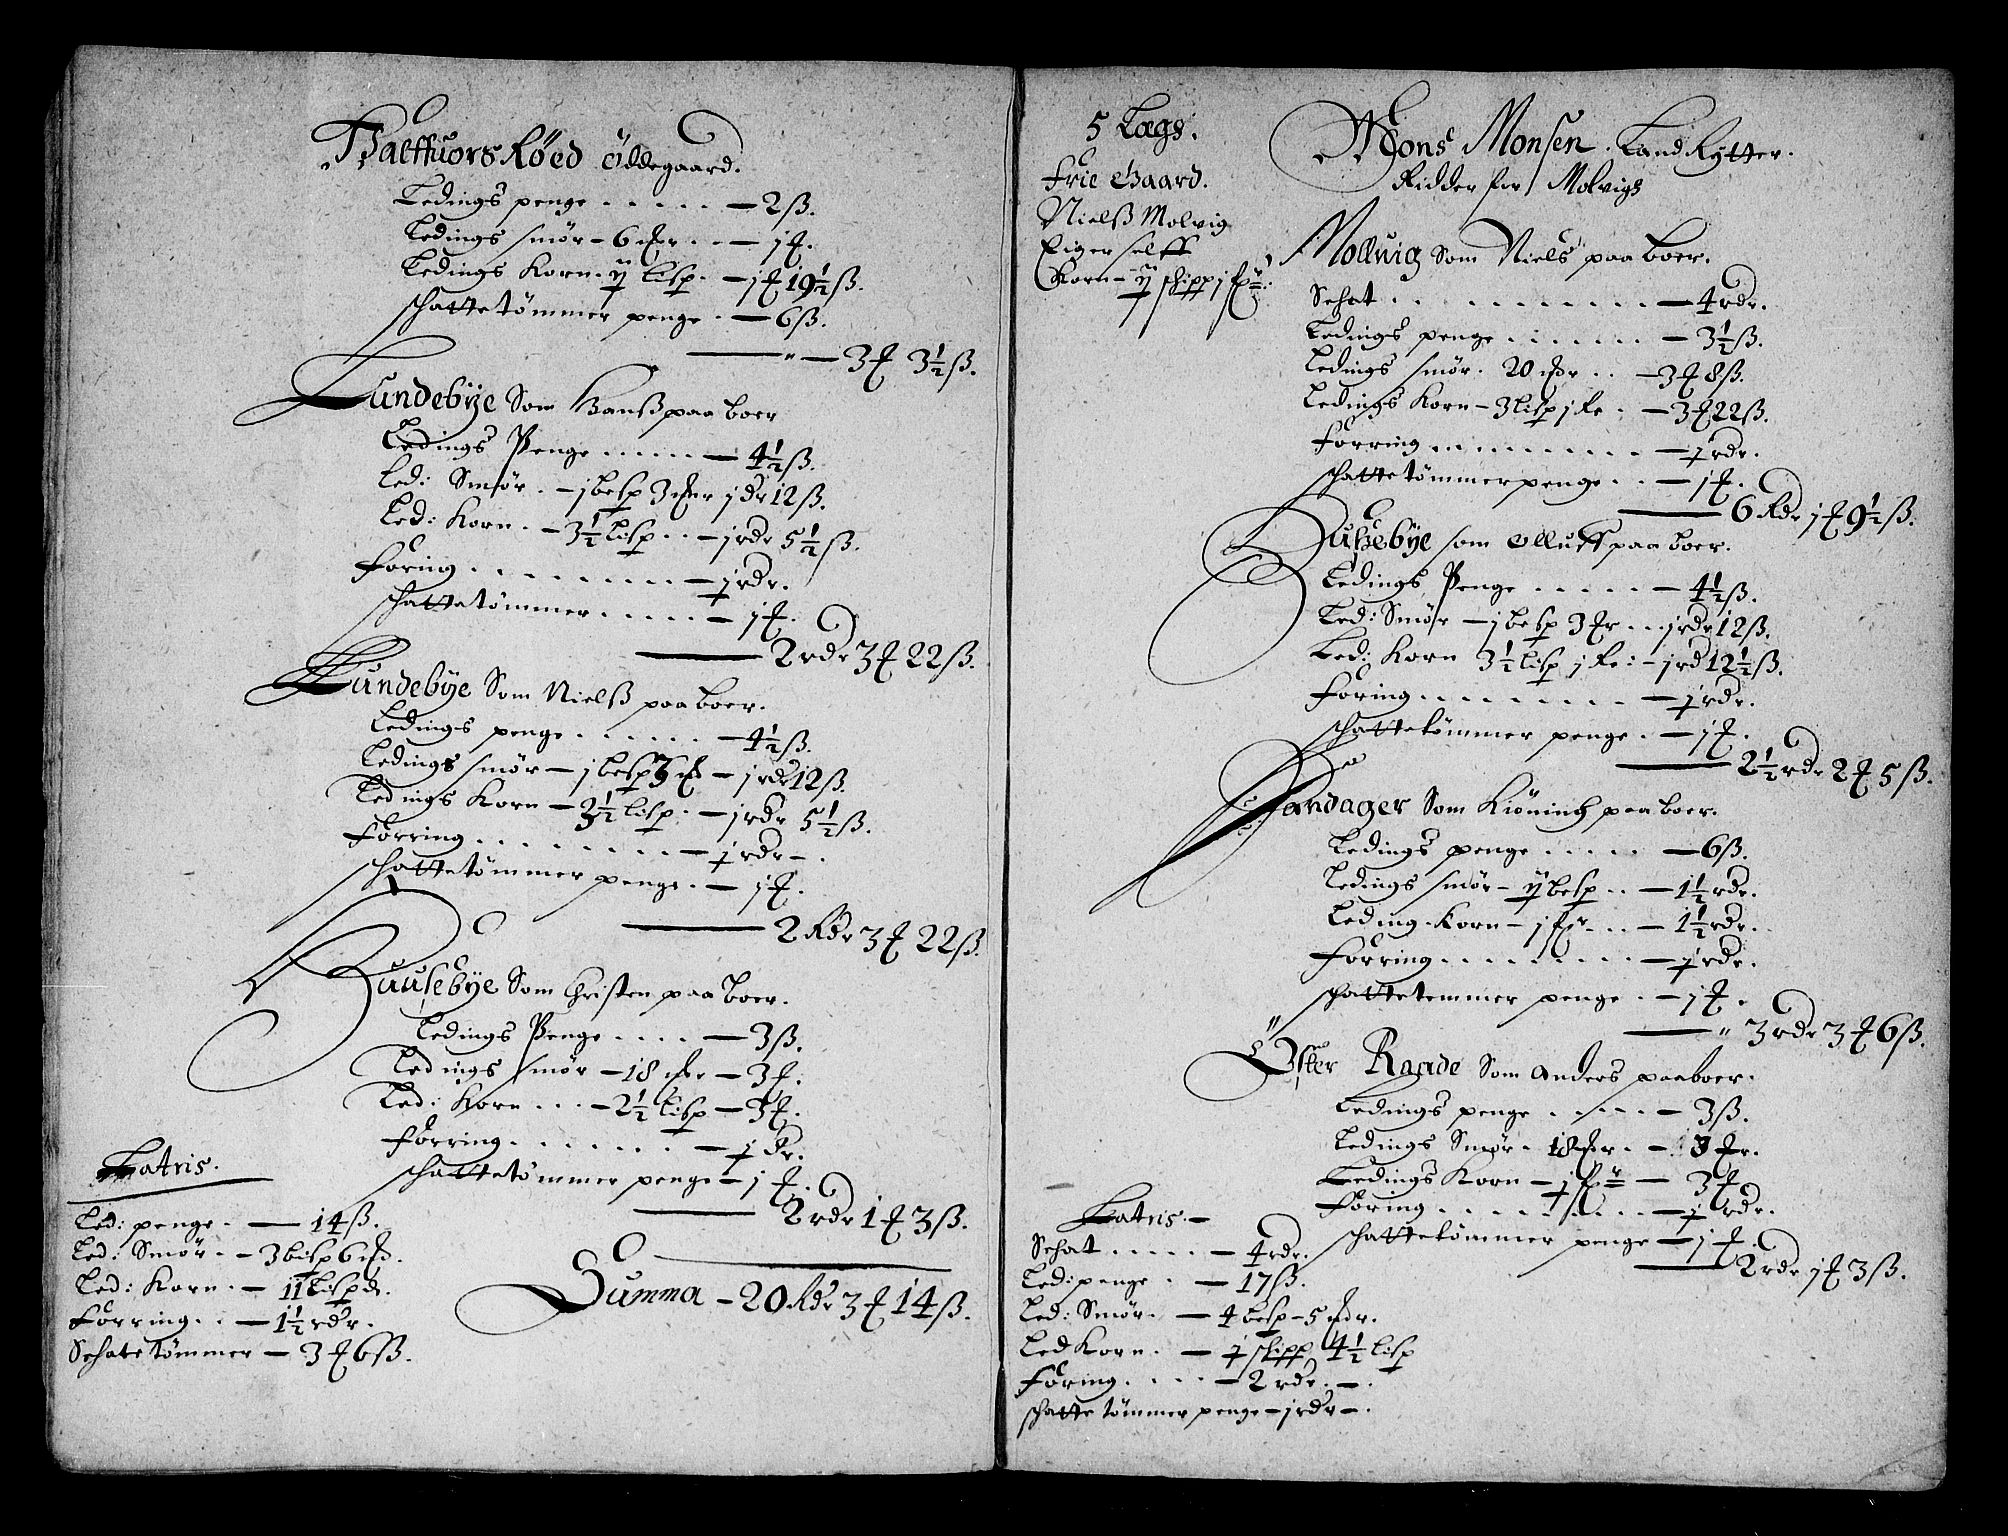 Halffuors Røed Ødegaard.
Ledings penge . . . . . — 2 ß.
Ledings smør – 6 mkr . . — j ƒ.
Ledings Korn . ij lisp. — j ƒ 19½ ß.
schattetømmer penge . — 6 ß.
— " — 3 ƒ 3½ ß.
Lundebÿe Som Hanß paa boer
Ledings Penge . . . . . — 4½ ß.
Led: Smør . — j besp 3 mkr j dr 12 ß.
Led: Korn . — 3½ lisp . . — j rdr 5½ ß.
Foring . . . . . . . . — j rdr.
schattetømmer . . . . . — j ƒ.
— 2 rdr 3 ƒ 22 ß.
Lundebÿe Som Nielß paa boer.
Ledings penge . . . . . . — 4½ ß.
Ledings smør – j besp 3 mk — j rdr 12 ß.
Ledings Korn — 3½ lisp: — j rdr 5½ ß.
Førring . . . . . . . . — j rdr – .
schattetømmer penge . — j ƒ.
— 2 Rdr 3 ƒ 22 ß.
Huusebÿe Som Christen paa boer.
Ledings Penge . . . . — 3 ß.
Ledings smør – 18 mkr – 3 ƒ.
Led: Korn . . . – 2½ lisp – 3 ƒ.
Førring . . . . . . . — j dr.
schattetømmer penge – j ƒ.
— 2 rdr 1 ƒ 3 ß.
Summa – 20 Rdr 3 ƒ 14 ß.
Latris.
Led: penge . — 14 ß.
Led: Smør . – 3 bisp 6 mk.
Led: Korn . — 11 lispd.
Førring . . — 1½ rdr.
Schatetømmer – 3 ƒ 6 ß.
5 Lægs.
Frie Gaard.
Nielß Molvig
Eiger selff
Korn – ij skipp j fr:
Mons Monsen Land Rÿtter.
Ridder for Molvigs
Mollvig Som Niels paa boer.
Schat . . . . . . . . . . — 4 rdr.
Ledings penge . . . . . . . — 3½ ß.
Ledings smør . 20 mkr . . — 3 ƒ 8 ß.
Ledings Korn – 3 lisp j fr . — 3 ƒ 22 ß.
Førring . . . . . . . . . . — j rdr.
schattetømmerpenge . . — j ƒ.
— 6 Rdr j ƒ 9½ ß.
Hußebÿe som Olluff paa boer.
Ledings Penge . . . . . — 4½ ß.
Led: Smør — j besp 3 mkr . . j rdr 12 ß.
Led: Korn 3½ lisp j fr: – j rd 12½ ß.
Føring . . . . . . . . — j rdr.
schattetømmer penge . — j ƒ.
— 2½ rdr 2 ƒ 5 ß.
Sandager Som Kiøninch paa boer.
Ledings penge . . . . . — 6 ß.
Ledings smør – ij besp . . — 1½ rdr.
Leding Korn – j fr . . . — 1½ rdr.
Førring . . . . . . . . . — j rdr.
schattetemmer penge . — j ƒ.
— " 3 rdr 3 ƒ 6 ß.
Øster Raade Som Anders paa boer.
Ledings penge . . . . — 3 ß.
Ledings Smør . 18 mkr . – 3 ƒr.
Ledings Korn – j fr — 3 ƒ.
Føring . . . . . . . . — j rdr.
schattetømmer penge – j ƒ.
— 2 rdr j ƒ 3 ß.
Latris. –
Schat . . . . . — 4 rdr.
Led: penge . — 17 ß.
Led: Smør . — 4 besp – 5 mkr.
Led Korn . — j skipp 4½ lisp
Føring . . . . — 2 rdr . — .
schattetømmer penge – j rdr – .